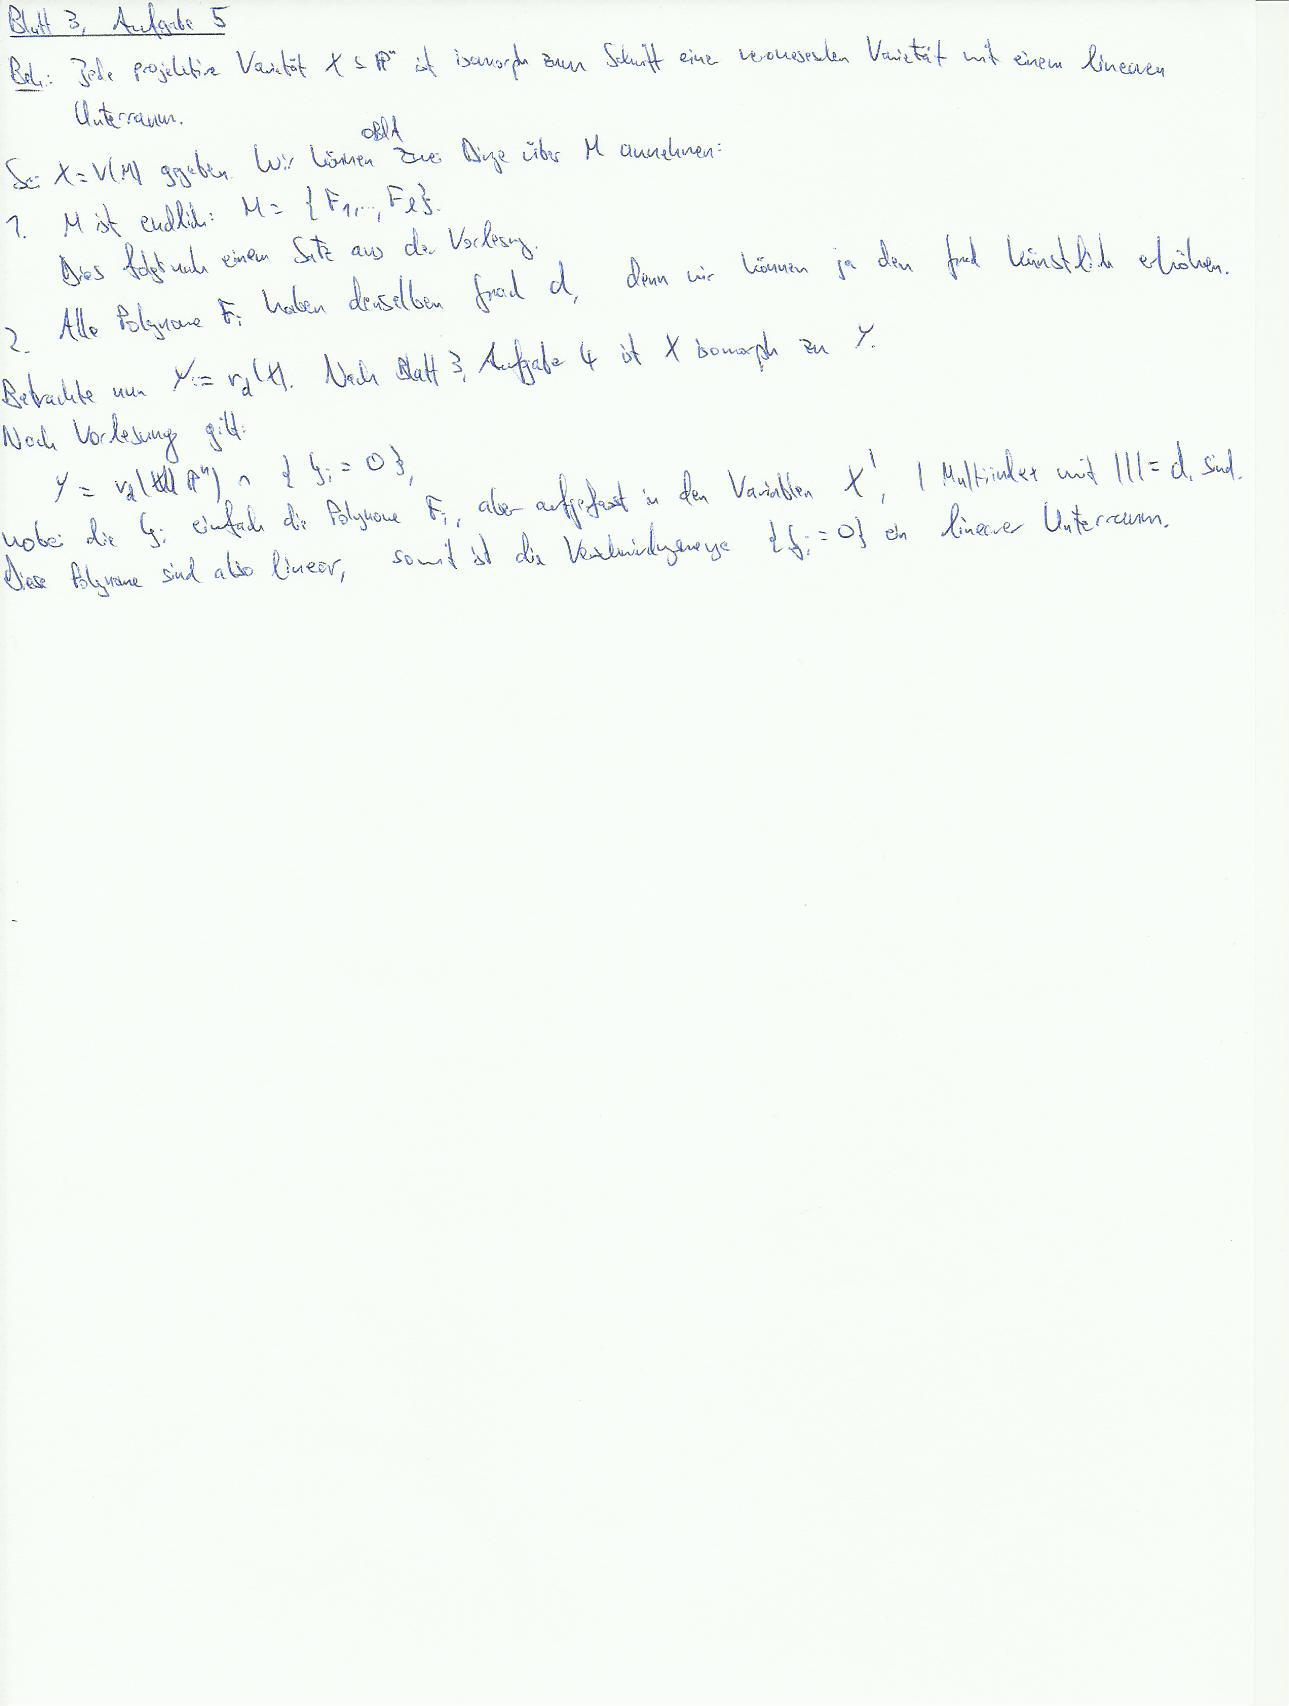 Blatt 3, Aufgabe 5
Beh.: Jede projektive Varietät X ⊆ ℙⁿ ist isomorph zum Schnitt einer veronesischen Varietät mit einem linearen
Unterraum.
Sei X = V(M) gegeben. Wir können oBdA zwei Dinge über M annehmen:
1. M ist endlich: M = {F₁,..,Fₗ}.
Dies folgt nach einem Satz aus der Vorlesung.
2. Alle Polynome Fᵢ haben denselben Grad d, denn wir können ja den Grad künstlich erhöhen.
Betrachte nun Y := v_d(X). Nach Blatt 3, Aufgabe 4 ist X isomorph zu Y.
Nach Vorlesung gilt:
Y = v_d(ℙⁿ) ∩ { Gᵢ = 0 },
wobei die Gᵢ einfach die Polynome Fᵢ, aber aufgefasst in den Variablen X^I, I Multiindex mit |I| = d, sind.
Diese Polynome sind also linear, somit ist die Verschwindungsmenge {Gᵢ = 0} ein linearer Unterraum.